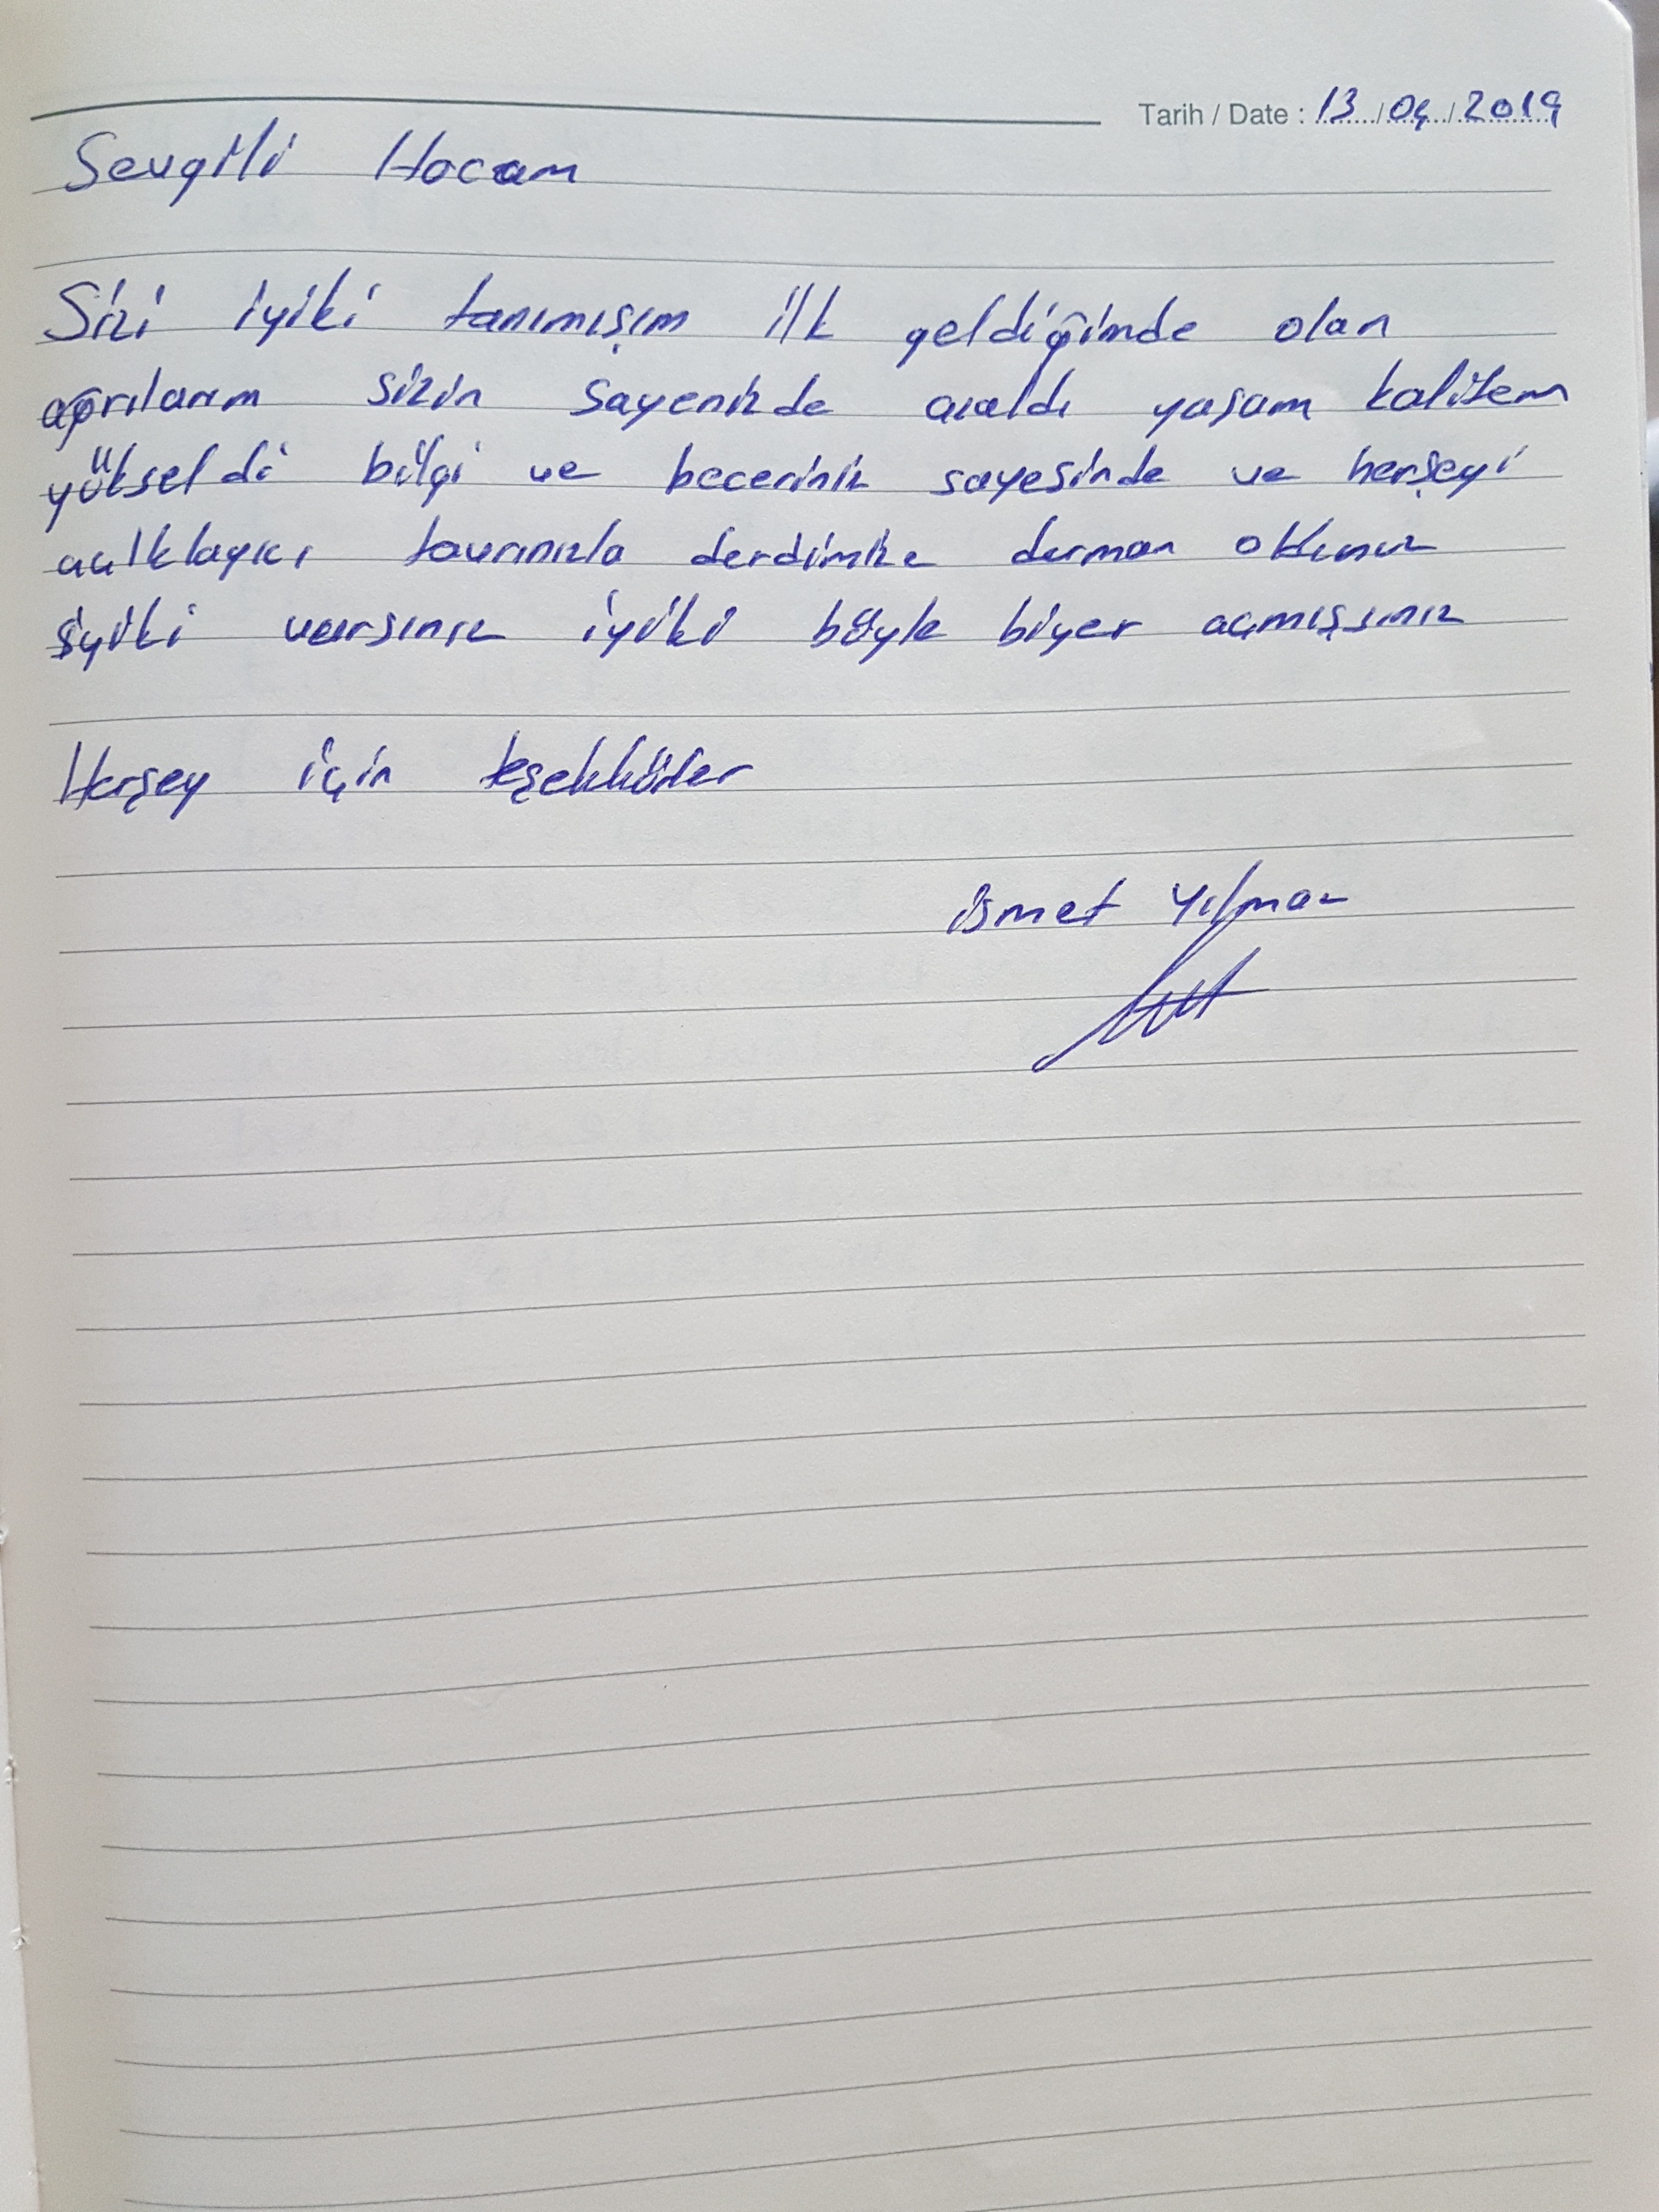 Tarih / Date : 13/04/2019
Sevgili Hocam
Sizi iyiki tanımışım ilk geldiğimde olan
ağrılarım sizin sayenizde azaldı yaşam kalitem
yükseldi bilgi ve beceriniz sayesinde ve herşeyi
açıklayıcı tavrınızla derdimize derman oldunuz
iyiki varsınız iyiki böyle biyer açmışsınız
Herşey için teşekkürler
ismet Yılmaz